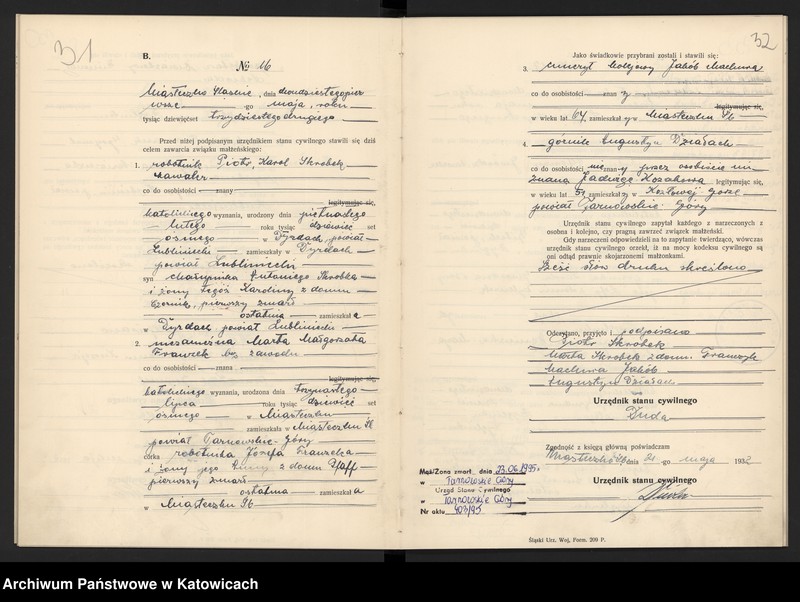 31
B.
№ 16
Miasteczko Śląskie, dnia dwudziestego pier
wsze go maja, roku
tysiąc dziewięćset trzydziestego drugiego
Przed niżej podpisanym urzędnikiem stanu cywilnego stawili się dziś
celem zawarcia związku małżeńskiego:
1. robotnik Piotr, Karol Skrobek
kawaler
co do osobistości znany
legitymując się,
katolickiego wyznania, urodzony dnia piętnastego
lutego roku tysiąc dziewięć set
ósmego w Tyrdach, powiat
Lubliniecki zamieszkały w Tyrdach
powiat Lubliniecki
syn chałupnika Antoniego Skrobka
i żony tegoż Karoliny z domu
pierwszy zmarł
ostatnia zamieszkał a
w Tyrdach, powiat Lubliniecki
2. niezamężna Marta Małgorzata
Frawczek bez zawodu
co do osobistości znana
legitymując się,
katolickiego wyznania, urodzona dnia trzynastego
lipca roku tysiąc dziewięć set
ósmego w Miasteczku
zamieszkała w Miasteczku Śl.
powiat Tarnowskie-Góry
córka robotnika Józefa
i żony jego z domu Pfaff
pierwszy zmarł
ostatnia zamieszkał a
w Miasteczku Śl.
32
Jako świadkowie przybrani zostali i stawili się:
3. emeryt kolejowy Jakób Machura
co do osobistości znan y
legitymując się,
w wieku lat 67, zamieszkał y w Miasteczku Śl.
4. górnik Augustyn
co do osobistości nie znan y przez osobiście mi
znaną Jadwigę legitymując się,
w wieku lat zamieszkał y w Kozłowej górze
powiat Tarnowskie-Góry
Urzędnik stanu cywilnego zapytał każdego z narzeczonych z
osobna i kolejno, czy pragną zawrzeć związek małżeński.
Gdy narzeczeni odpowiedzieli na to zapytanie twierdząco, wówczas
urzędnik stanu cywilnego orzekł, iż na mocy kodeksu cywilnego są
oni odtąd prawnie skojarzonemi małżonkami.
Sześć słów druku skreślono
Odczytano, przyjęto i podpisano
Piotr Skrobek
Marta Skrobek z dom.
Machura Jakób
Augustyn
Urzędnik stanu cywilnego
Duda
Zgodność z księgą główną poświadczam
Miasteczko Śl. dnia 21 go maja 1932
Urzędnik stanu cywilnego
Duda
Mąż/Żona zmarł. dnia 23.06.1995r.
w Tarnowskie Góry
Urząd Stanu Cywilnego
w Tarnowskie Góry
Nr aktu 403/95
Śląski Urz. Woj. Form. 209 P.
Archiwum Państwowe w Katowicach